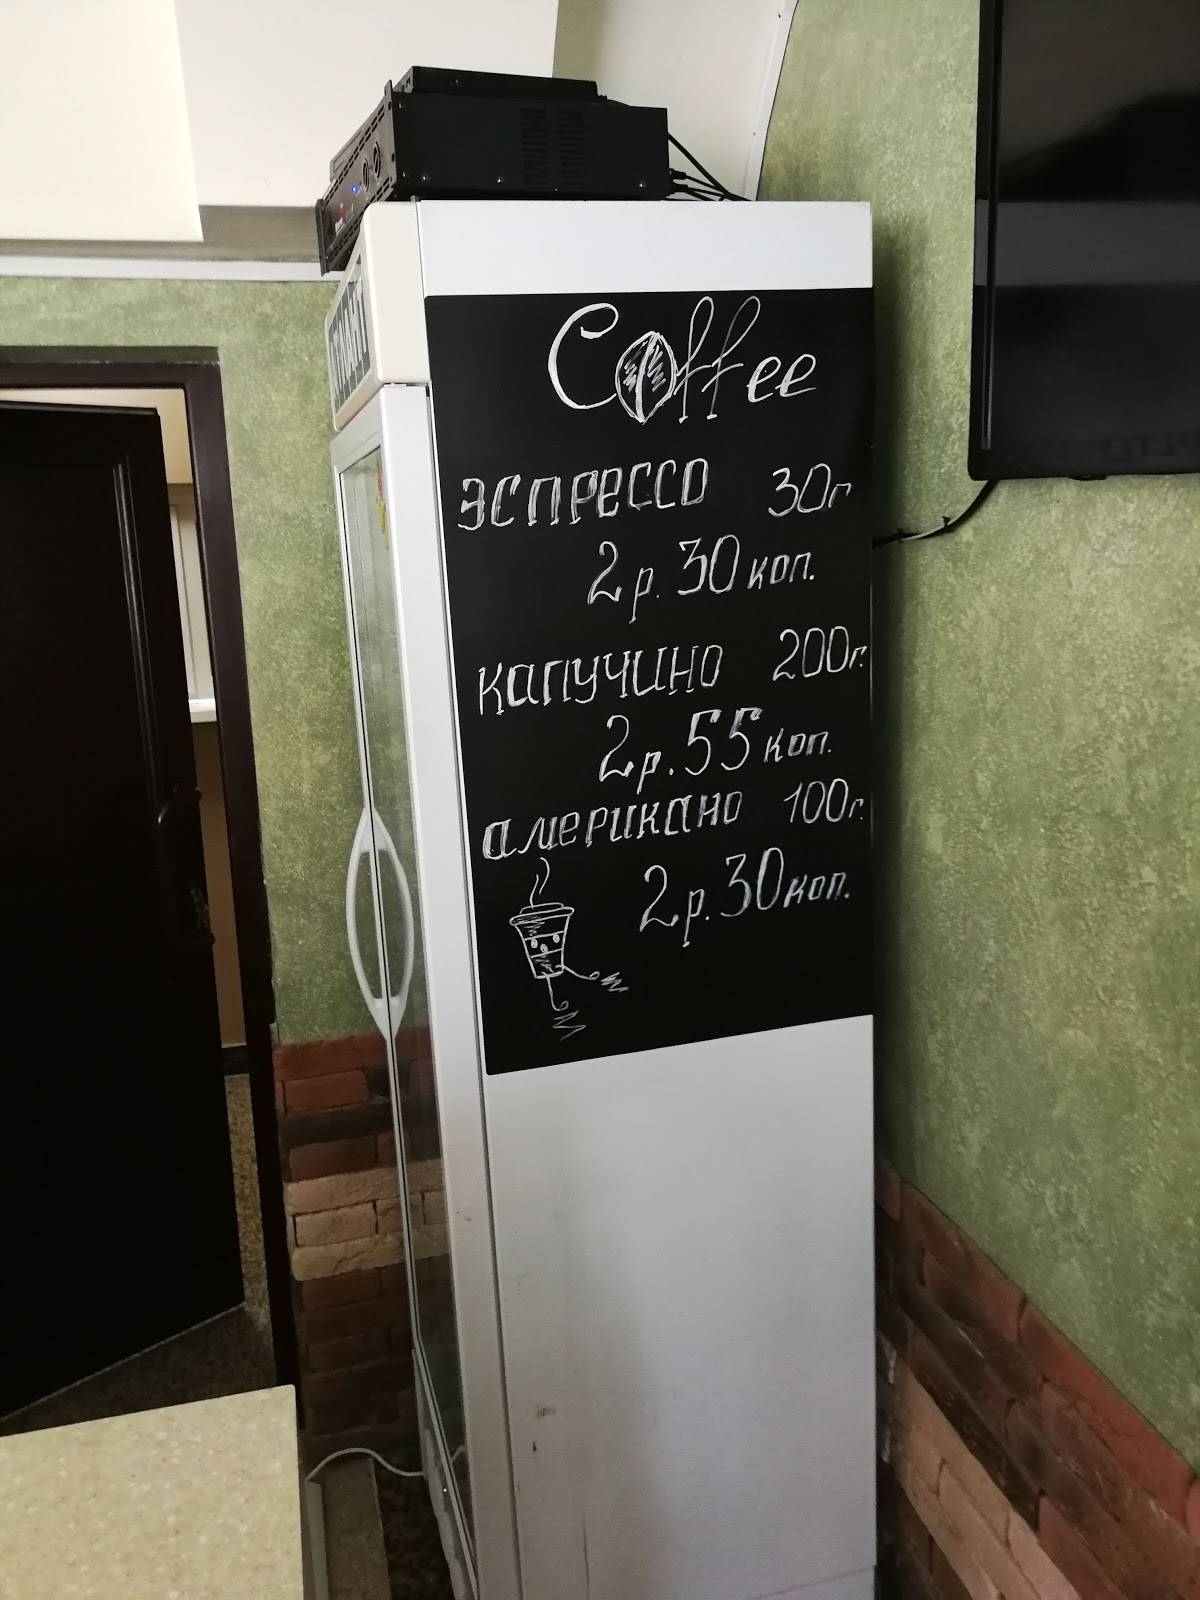 Coffee
эспрессо 30г
2р. 30 коп.
капучино 200г.
2р. 55 коп.
американо 100г.
2р. 30 коп.